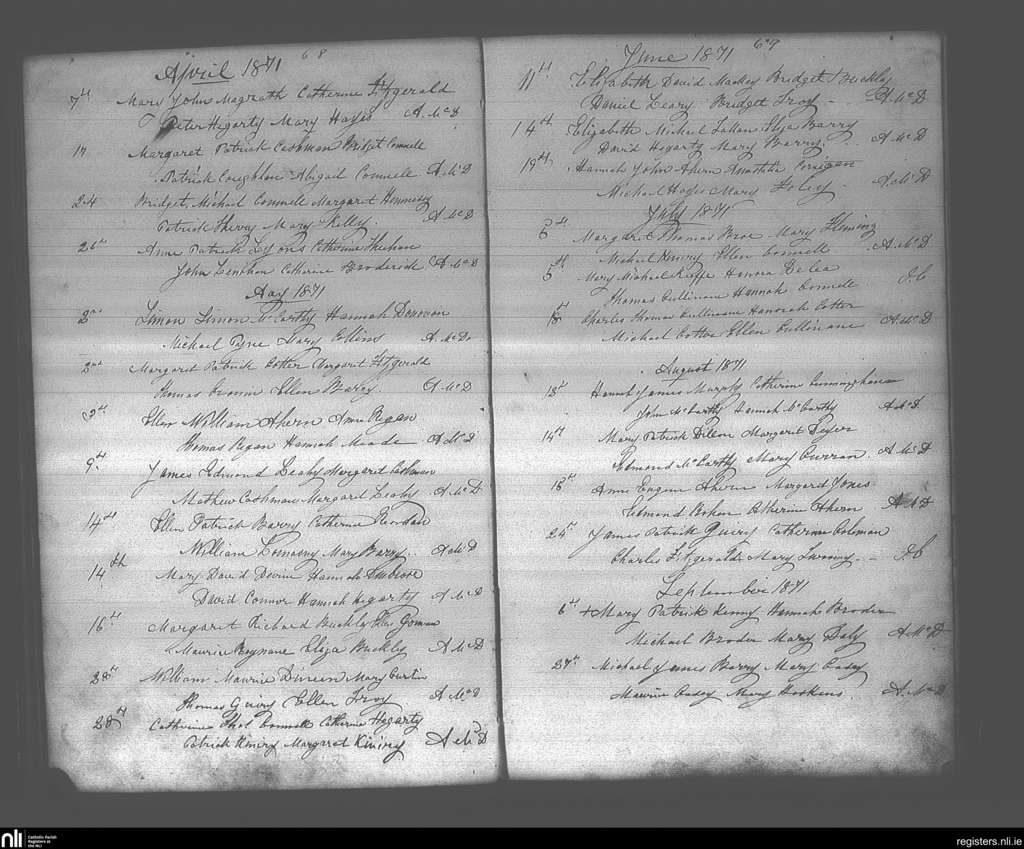 April 1871 68
7th Mary John Magrath Catherine Fitzgerald
Peter Hegarty Mary Hayes A. McD
17 Margaret Patrick Cashman Bridget Connell
Patrick Coughlan Abigail Connell A McD
24 Bridget Michael Connell Margaret Hennessy
Patrick Sherry Mary Kelly A McD
26th Anne Patrick Lyons Catherine Sheehan
John Lenihan Catherine Broderick A. McD
May 1871
2nd Simon Simon McCarthy Hannah Donovan
Michael Pyne Mary Collins A. McD
2nd Margaret Patrick Cotter Margaret Fitzgerald
Thomas Ellen Barry A McD
2nd Ellen William Ahern Anne Regan
Thomas Regan Hannah Meade A McD
9th James Edmond Leahy Margaret Cashman
Mathew Cashman Margaret Leahy A. McD
14th Ellen Patrick Barry Catherine Riordan
William Lomasny Mary Barry A McD
14th Mary David Devine Hannah Ambrose
David Connor Hannah Hegarty A McD
16th Margaret Richard Buckley Gorman
Maurice Eliza Buckley A McD
28th William Maurice Dineen Mary Curtin
Thomas Quiry Ellen Troy A McD
28th Catherine Thos Connell Catherine Hegarty
Patrick Kiniry Margaret Kiniry A McD
June 1871 69
11th Elizabeth David Mackey Bridget Buckley
Daniel Leary Bridget Troy A McD
14th Elizabeth Michael Eliza Barry
David Hegarty Mary Barry A McD
19th Hannah John Ahern Anastatia Corrigan
Michael Hayes Mary Foley A McD
July 1871
5th Margaret Thomas Broe Mary Fleming
Michael Kiniry Ellen Connell A. McD
5th Mary Michael Keeffe Honora Delea
Thomas Cullinane Hannah Connell J.C
Charles Thomas Cullinane Hannah Cotter
Michael Cotter Ellen Cullinane A McD
August 1871
13th Hannah James Murphy Catherine Cunningham
John McCarthy Hannah McCarthy A McD
14th Mary Patrick Dilene Margaret Dwyer
Edmond McCarthy Mary Curran A McD
Anne Eugene Ahern Margaret Jones
Edmond Catherine Ahern A McD
24th James Patrick Quiry Catherine Coleman
Charles Fitzgerald Mary J.C
September 1871
6th +Mary Patrick Kenny Hannah Broder
Michael Broder Mary Daly A McD
27th Michael James Barry Mary Casey
Maurice Casey Mary Hoskins A. McD
nli Catholic Parish
Registers at
the NLI
registers.nli.ie